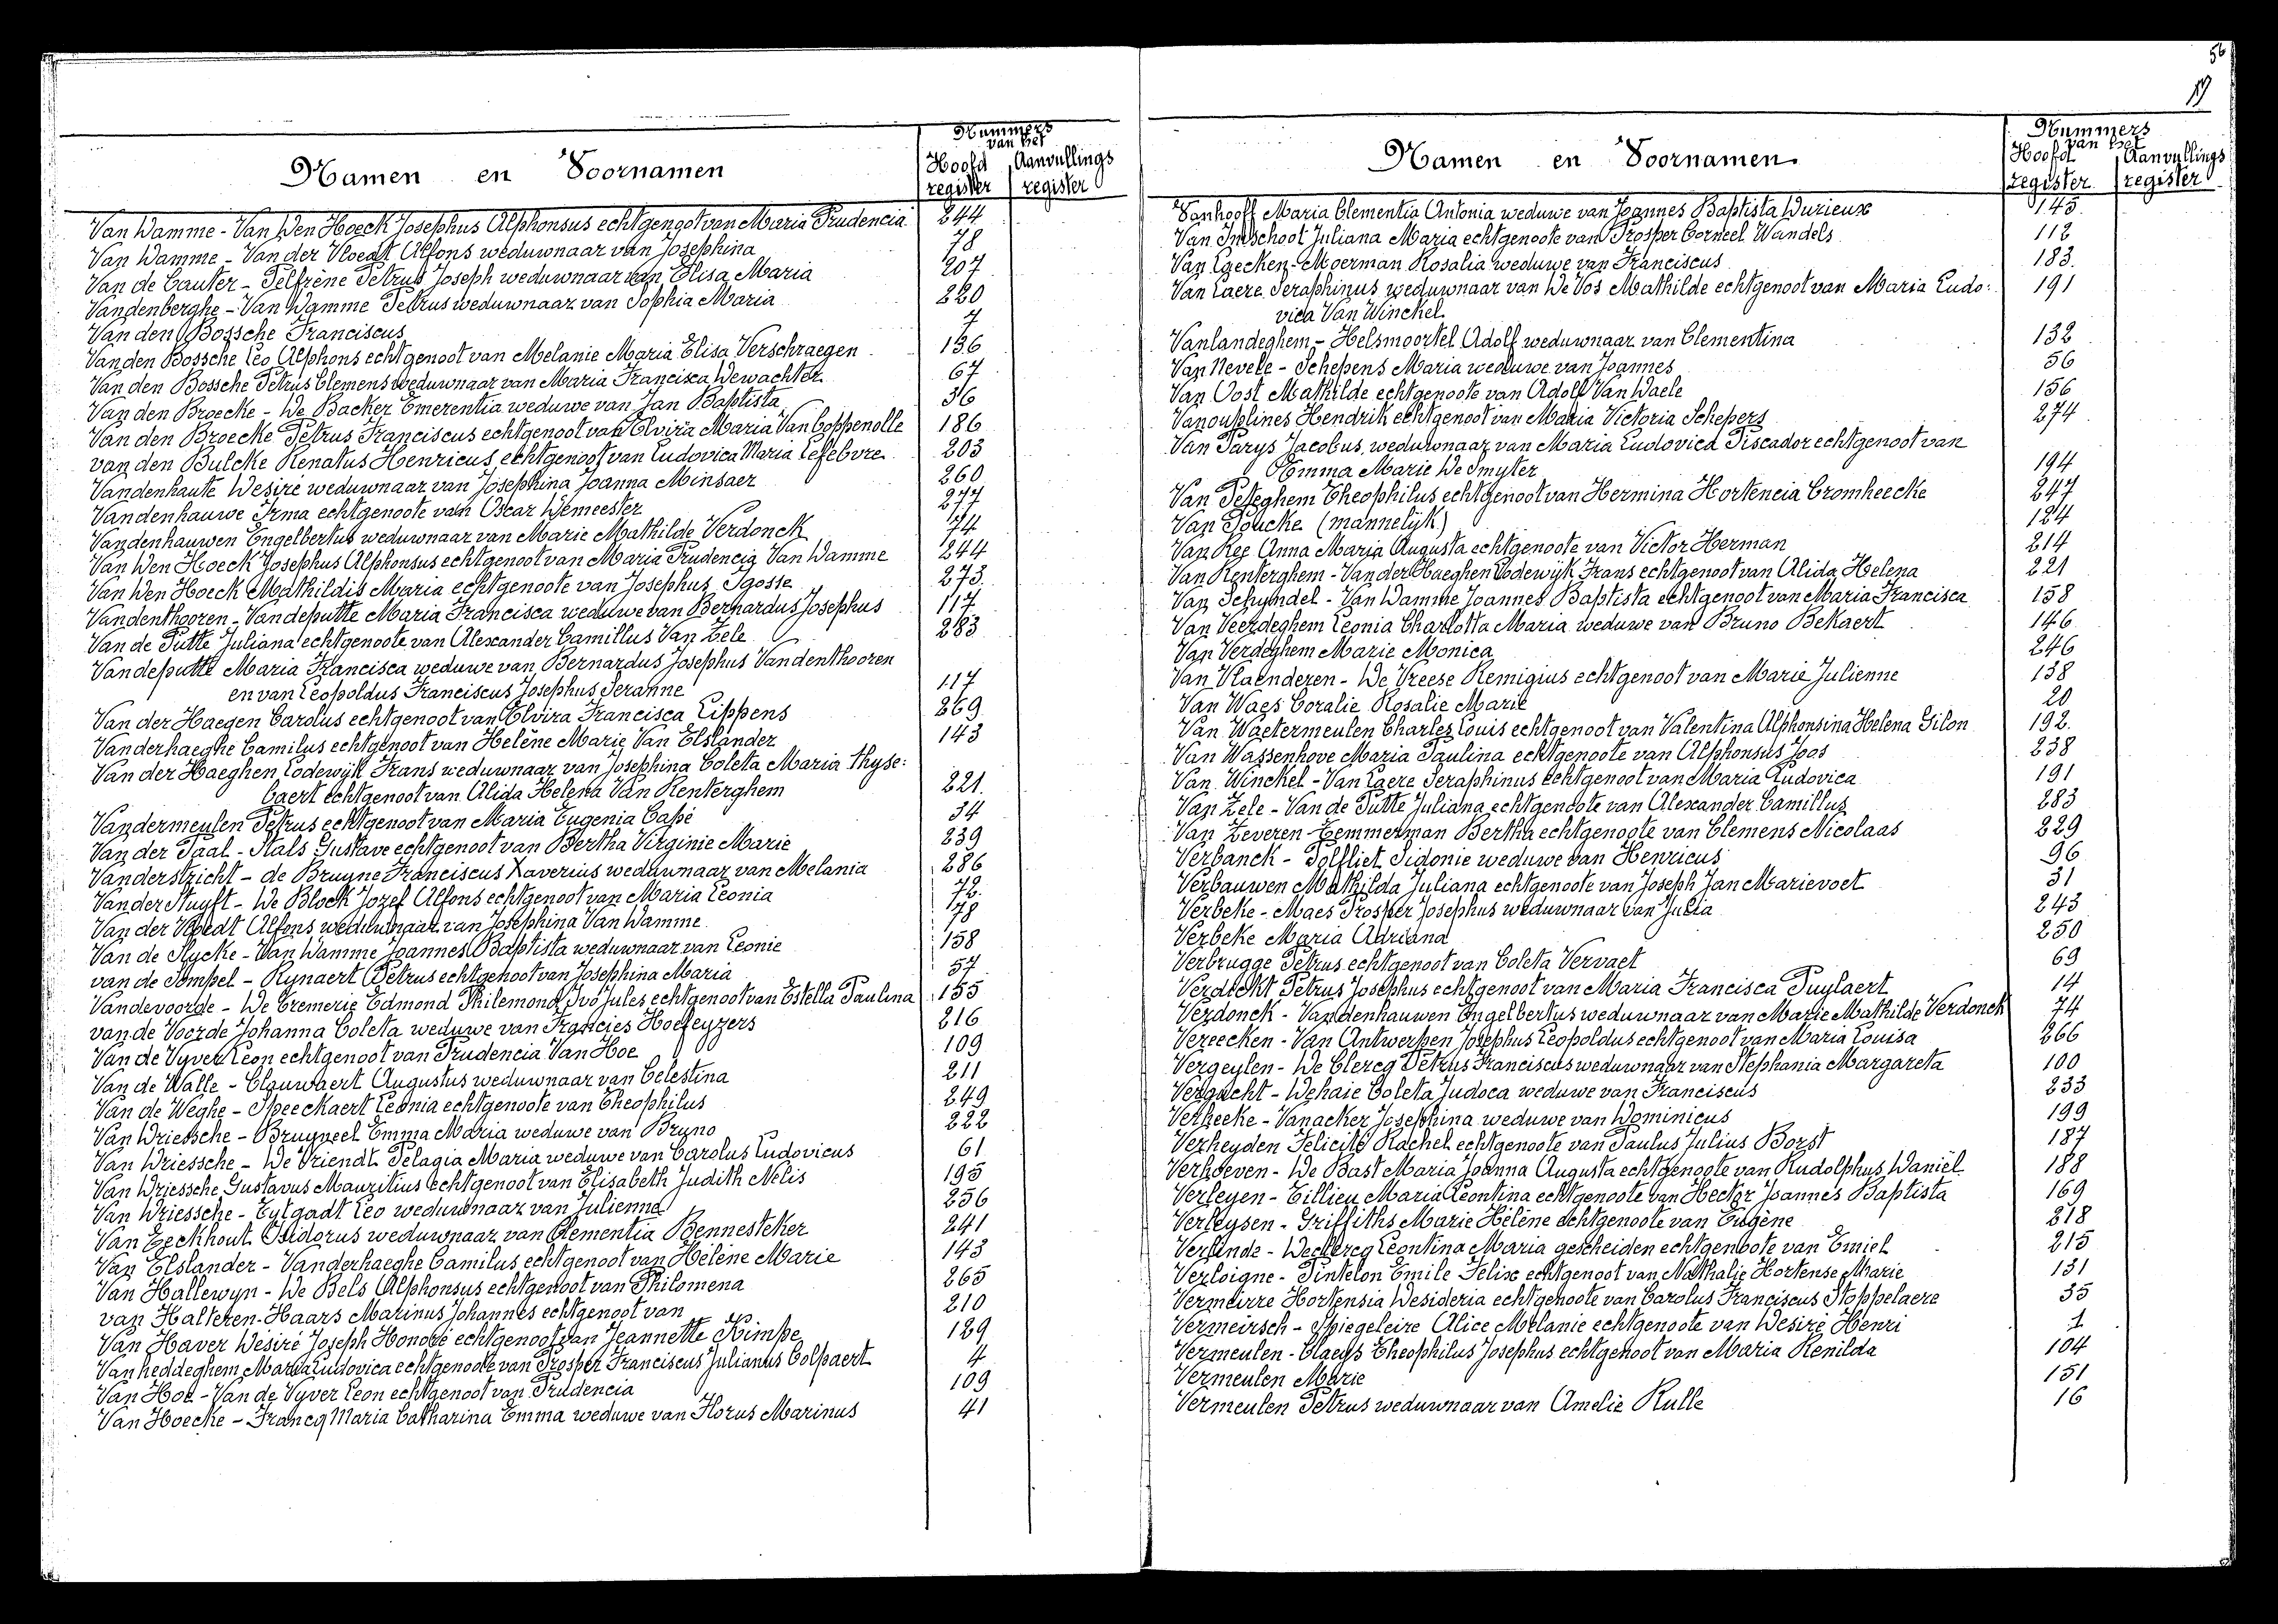 56
19
Nummers
van het
Namen en Voornamen
Hoofd Aanvullings
register register
Van Damme - Van Den Hoeck Josephus Alphonsus echtgenoot van Maria Prudencia 244
Van Damme - Van der Vloedt Alfons weduwnaar van Josephina 78
Van de Cauter - Pelfrène Petrus Joseph weduwnaar van Elisa Maria 207
Vandenberghe - Van Damme Petrus weduwnaar van Sophia Maria 220
Van den Bossche Franciscus 7
Van den Bossche Leo Alphons echtgenoot van Melanie Maria Elisa Verschraegen 136
Van den Bossche Petrus Clemens weduwnaar van Maria Francisca Dewachter 67
Van den Broecke - De Backer Emerentia weduwe van Jan Baptista 36
Van den Broecke Petrus Franciscus echtgenoot van Elvira Maria Van Coppenolle 186
van den Bulcke Renatus Henricus echtgenoot van Ludovica Maria Lefebvre 203
Vandenhaute Desiré weduwnaar van Josephina Joanna Minsaer 260
Vandenhauwe Irma echtgenote van Oscar Demeester 277
Vandenhauwen Engelbertus weduwnaar van Marie Mathilde Verdonck 74
Van Den Hoeck Josephus Alphonsus echtgenoot van Maria Prudencia Van Damme 244
Van Den Hoeck Mathildis Maria echtgenote van Josephus Igosse 273
Vandenthooren - Vandeputte Maria Francisca weduwe van Bernardus Josephus 117
Van de Putte Juliana echtgenoote van Alexander Camillus Van Zele 283
Vandeputte Maria Francisca weduwe van Bernardus Josephus Vandenthooren
en van Leopoldus Franciscus Josephus Seranne 117
Van der Haegen Carolus echtgenoot van Elvira Francisca Lippens 269
Vanderhaeghe Camilus echtgenoot van Helène Marie Van Elslander 143
Van der Haeghen Lodewijk Frans weduwnaar van Josephina Coleta Maria Thyse:
baert echtgenoot van Alida Helena Van Renterghem 221
Vandermeulen Petrus echtgenoot van Maria Eugenia Capé 34
Van der Taal - Stals Gustave echtgenoot van Bertha Virginie Marie 239
Vanderstricht - de Bruyne Franciscus Xaverius weduwnaar van Melania 286
Van der Stuyft - De Block Jozef Alfons echtgenoot van Maria Leonia 72
Van der Vloedt Alfons weduwnaar van Josephina Van Damme 78
Van de Slycke - Van Damme Joannes Baptista weduwnaar van Leonie 158
van de Sompel - Rynaert Petrus echtgenoot van Josephina Maria 57
Vandevoorde - De Cremerie Edmond Philemond Ivo Jules echtgenoot van Estella Paulina 155
van de Voorde Johanna Coleta weduwe van Francies Hoefeyzers 216
Van de Vyver Leon echtgenoot van Prudencia Van Hoe 109
Van de Walle - Clauwaert Augustus weduwnaar van Celestina 211
Van de Weghe - Speeckaert Leonia echtgenoote van Theophilus 249
Van Driessche - Bruyneel Emma Maria weduwe van Bruno 222
Van Driessche - De Vriendt Pelagia Maria weduwe van Carolus Ludovicus 61
Van Driessche Gustavus Mauritius echtgenoot van Elisabeth Judith Nelis 195
Van Driessche - Eylgadt Leo weduwnaar van Julienne 256
Van Eeckhout Isidorus weduwnaar van Clementia Bennesteker 241
Van Elslander - Vanderhaeghe Camilus echtgenoot van Hélène Marie 143
Van Hallewyn - De Bels Alphonsus echtgenoot van Philomena 265
van Halteren - Haars Marinus Johannes echtgenoot van 210
Van Haver Desiré Joseph Honoré echtgenoot van Jeannette Kimpe 129
Vanheddeghem Maria Ludovica echtgenoote van Prosper Franciscus Julianus Colpaert 4
Van Hoe - Van de Vyver Leon echtgenoot van Prudencia 109
Van Hoecke - Francq Maria Catharina Emma weduwe van Florus Marinus 41
Nummers
van het
Namen en Voornamen
Hoofd Aanvullings
register register
Vanhooff Maria Clementia Antonia weduwe van Joannes Baptista Durieux 145
Van Imschoot Juliana Maria echtgenoote van Prosper Corneel Wandels 112
Van Laecken - Moerman Rosalia weduwe van Franciscus 183
Van Laere Seraphinus weduwnaar van De Vos Mathilde echtgenoot van Maria Ludo: 191
vica Van Winckel
Vanlandeghem - Helsmoortel Adolf weduwnaar van Clementina 132
Van Nevele - Schepens Maria weduwe van Joannes 56
Van Oost Mathilde echtgenoote van Adolf Van Waele 156
Vanouplines Hendrik echtgenoot van Maria Victoria Schepers 274
Van Parys Jacobus weduwnaar van Maria Ludovica Piscador echtgenoot van
Emma Marie De Smyter 194
Van Peteghem Theophilus echtgenoot van Hermina Hortencia Cromheecke 247
Van Poucke (mannelijk) 124
Van Ree Anna Maria Augusta echtgenoote van Victor Herman 214
Van Renterghem - Van der Haeghen Lodewijk Frans echtgenoot van Alida Helena 221
Van Schyndel - Van Damme Joannes Baptista echtgenoot van Maria Francisca 158
Van Veerdeghem Leonia Charlotta Maria weduwe van Bruno Bekaert 146
Van Verdeghem Marie Monica 246
Van Vlaenderen - De Vreese Remigius echtgenoot van Marie Julienne 138
Van Waes Coralie Rosalie Marie 20
Van Waetermeulen Charles Louis echtgenoot van Valentina Alphonsina Helena Gilon 192
Van Wassenhove Maria Paulina echtgenoote van Alphonsus Joos 238
Van Winckel - Van Laere Seraphinus echtgenoot van Maria Ludovica 191
Van Zele - Van de Putte Juliana echtgenoote van Alexander Camillus 283
Van Zeveren - Temmerman Bertha echtgenoote van Clemens Nicolaas 229
Verbanck - Polfliet Sidonie weduwe van Henricus 96
Verbauwen Mathilda Juliana echtgenoote van Joseph Jan Marievoet 31
Verbeke - Maes Prosper Josephus weduwnaar van Julia 243
Verbeke Maria Adriana 250
Verbrugge Petrus echtgenoot van Coleta Vervaet 69
Verdickt Petrus Josephus echtgenoot van Maria Francisca Puylaert 14
Verdonck - Vandenhauwen Engelbertus weduwnaar van Marie Mathilde Verdonck 74
Vereecken - Van Antwerpen Josephus Leopoldus echtgenoot van Maria Louisa 266
Vergeylen - De Clercq Petrus Franciscus weduwnaar van Stephania Margareta 100
Vergucht - Dehaie Coleta Judoca weduwe van Franciscus 233
Verheeke - Vanacker Josephina weduwe van Dominicus 199
Verheyden Felicité Rachel echtgenoote van Paulus Julius Borst 187
Verhoeven - De Bast Maria Joanna Augusta echtgenoote van Rudolphus Daniël 188
Verleyen - Tillieu Maria Leontina echtgenoote van Hector Joannes Baptista 169
Verleysen - Griffiths Marie Hélène echtgenoote van Eugène 218
Verlinde - Declercq Leontina Maria gescheiden echtgenoote van Emiel 215
Verloigne - Pintelon Emile Felix echtgenoot van Nathalie Hortense Marie 131
Vermeirre Hortensia Desideria echtgenoote van Carolus Franciscus Stoppelaere 35
Vermeirsch - Spiegeleire Alice Melanie echtgenoote van Desiré Henri 1
Vermeulen - Claeys Theophilus Josephus echtgenoot van Maria Renilda 104
Vermeulen Marie 151
Vermeulen Petrus weduwnaar van Amelie Rulle 16